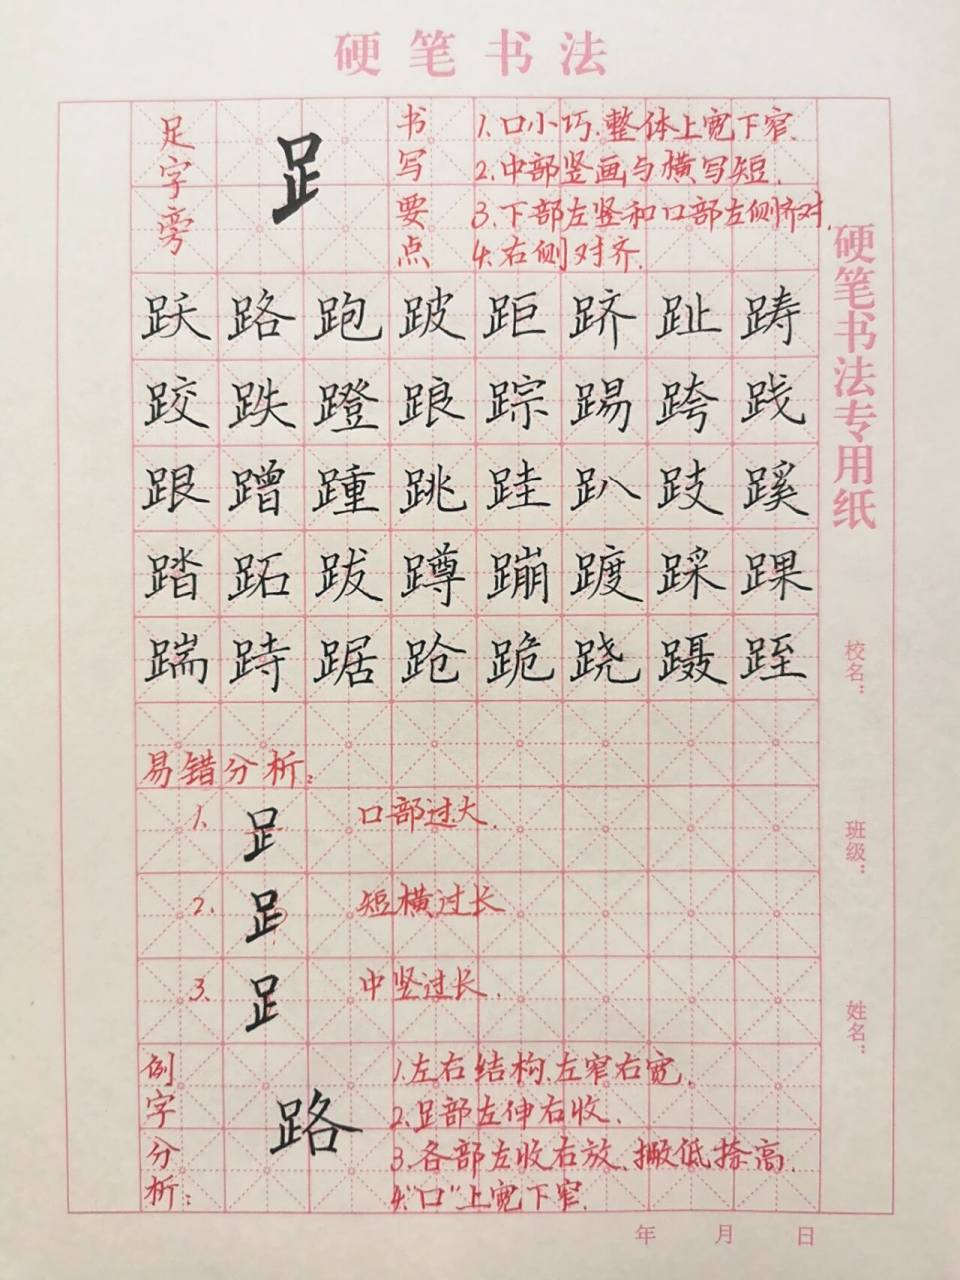 硬笔书法
足字旁
𧾷
书写要点
1.口小巧.整体上宽下窄.
2.中部竖画与横写短.
3.下部左竖和口部左侧挤对.
4.右侧对齐.
跃路跑跛距跻趾踌
跤跌蹬踉踪踢跨践
跟蹭踵跳跬趴跂蹊
踏跖跋蹲蹦踱踩踝
踹跱踞跄跪跷蹑跮
易错分析:
1. 𧾷 口部过大.
2. 𧾷 短横过长
3. 𧾷 中竖过长.
例字分析:
路
1.左右结构.左窄右宽.
2.𧾷部左伸右收.
3.各部左收右放.撇低捺高.
4."口"上宽下窄.
硬笔书法专用纸
校名:
班级:
姓名:
年 月 日